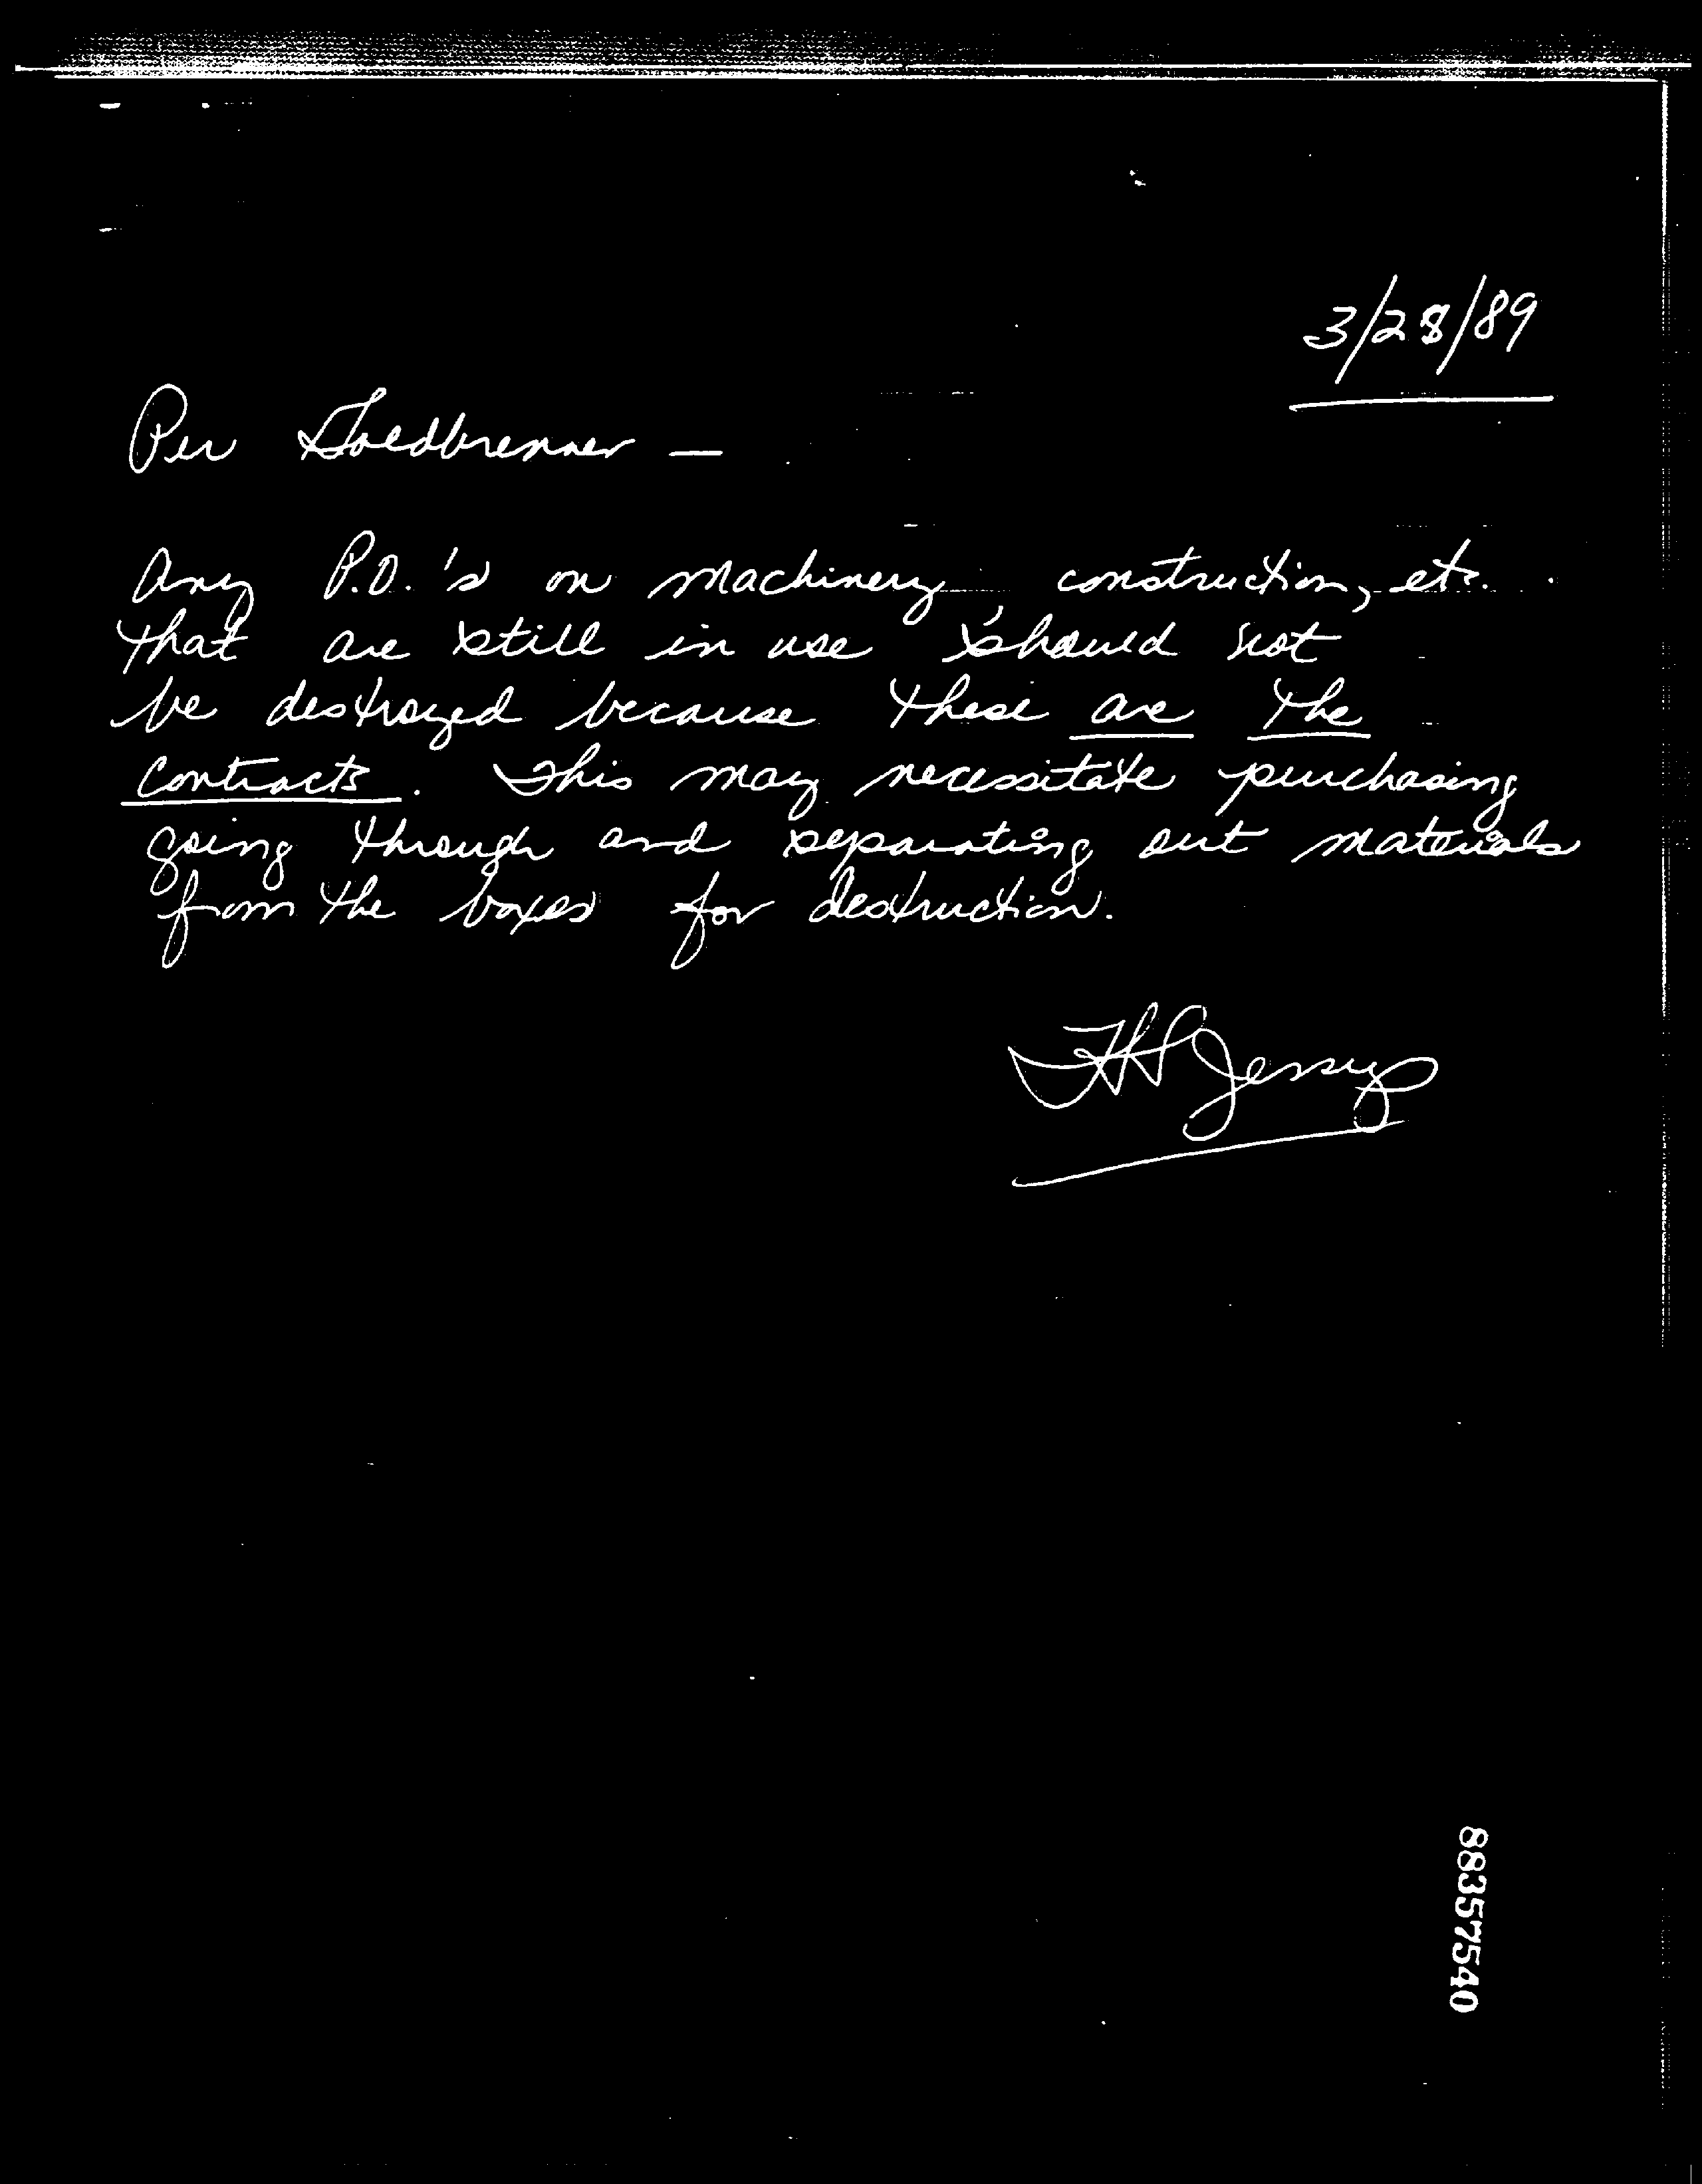 3/28/89
Per Goldbrenner —
Any P.O.'s on machinery construction, etc.
that are still in use should not
be destroyed because these are the
contracts. This may necessitate purchasing
going through and separating out materials
from the boxes for destruction.
Jessup
88357540